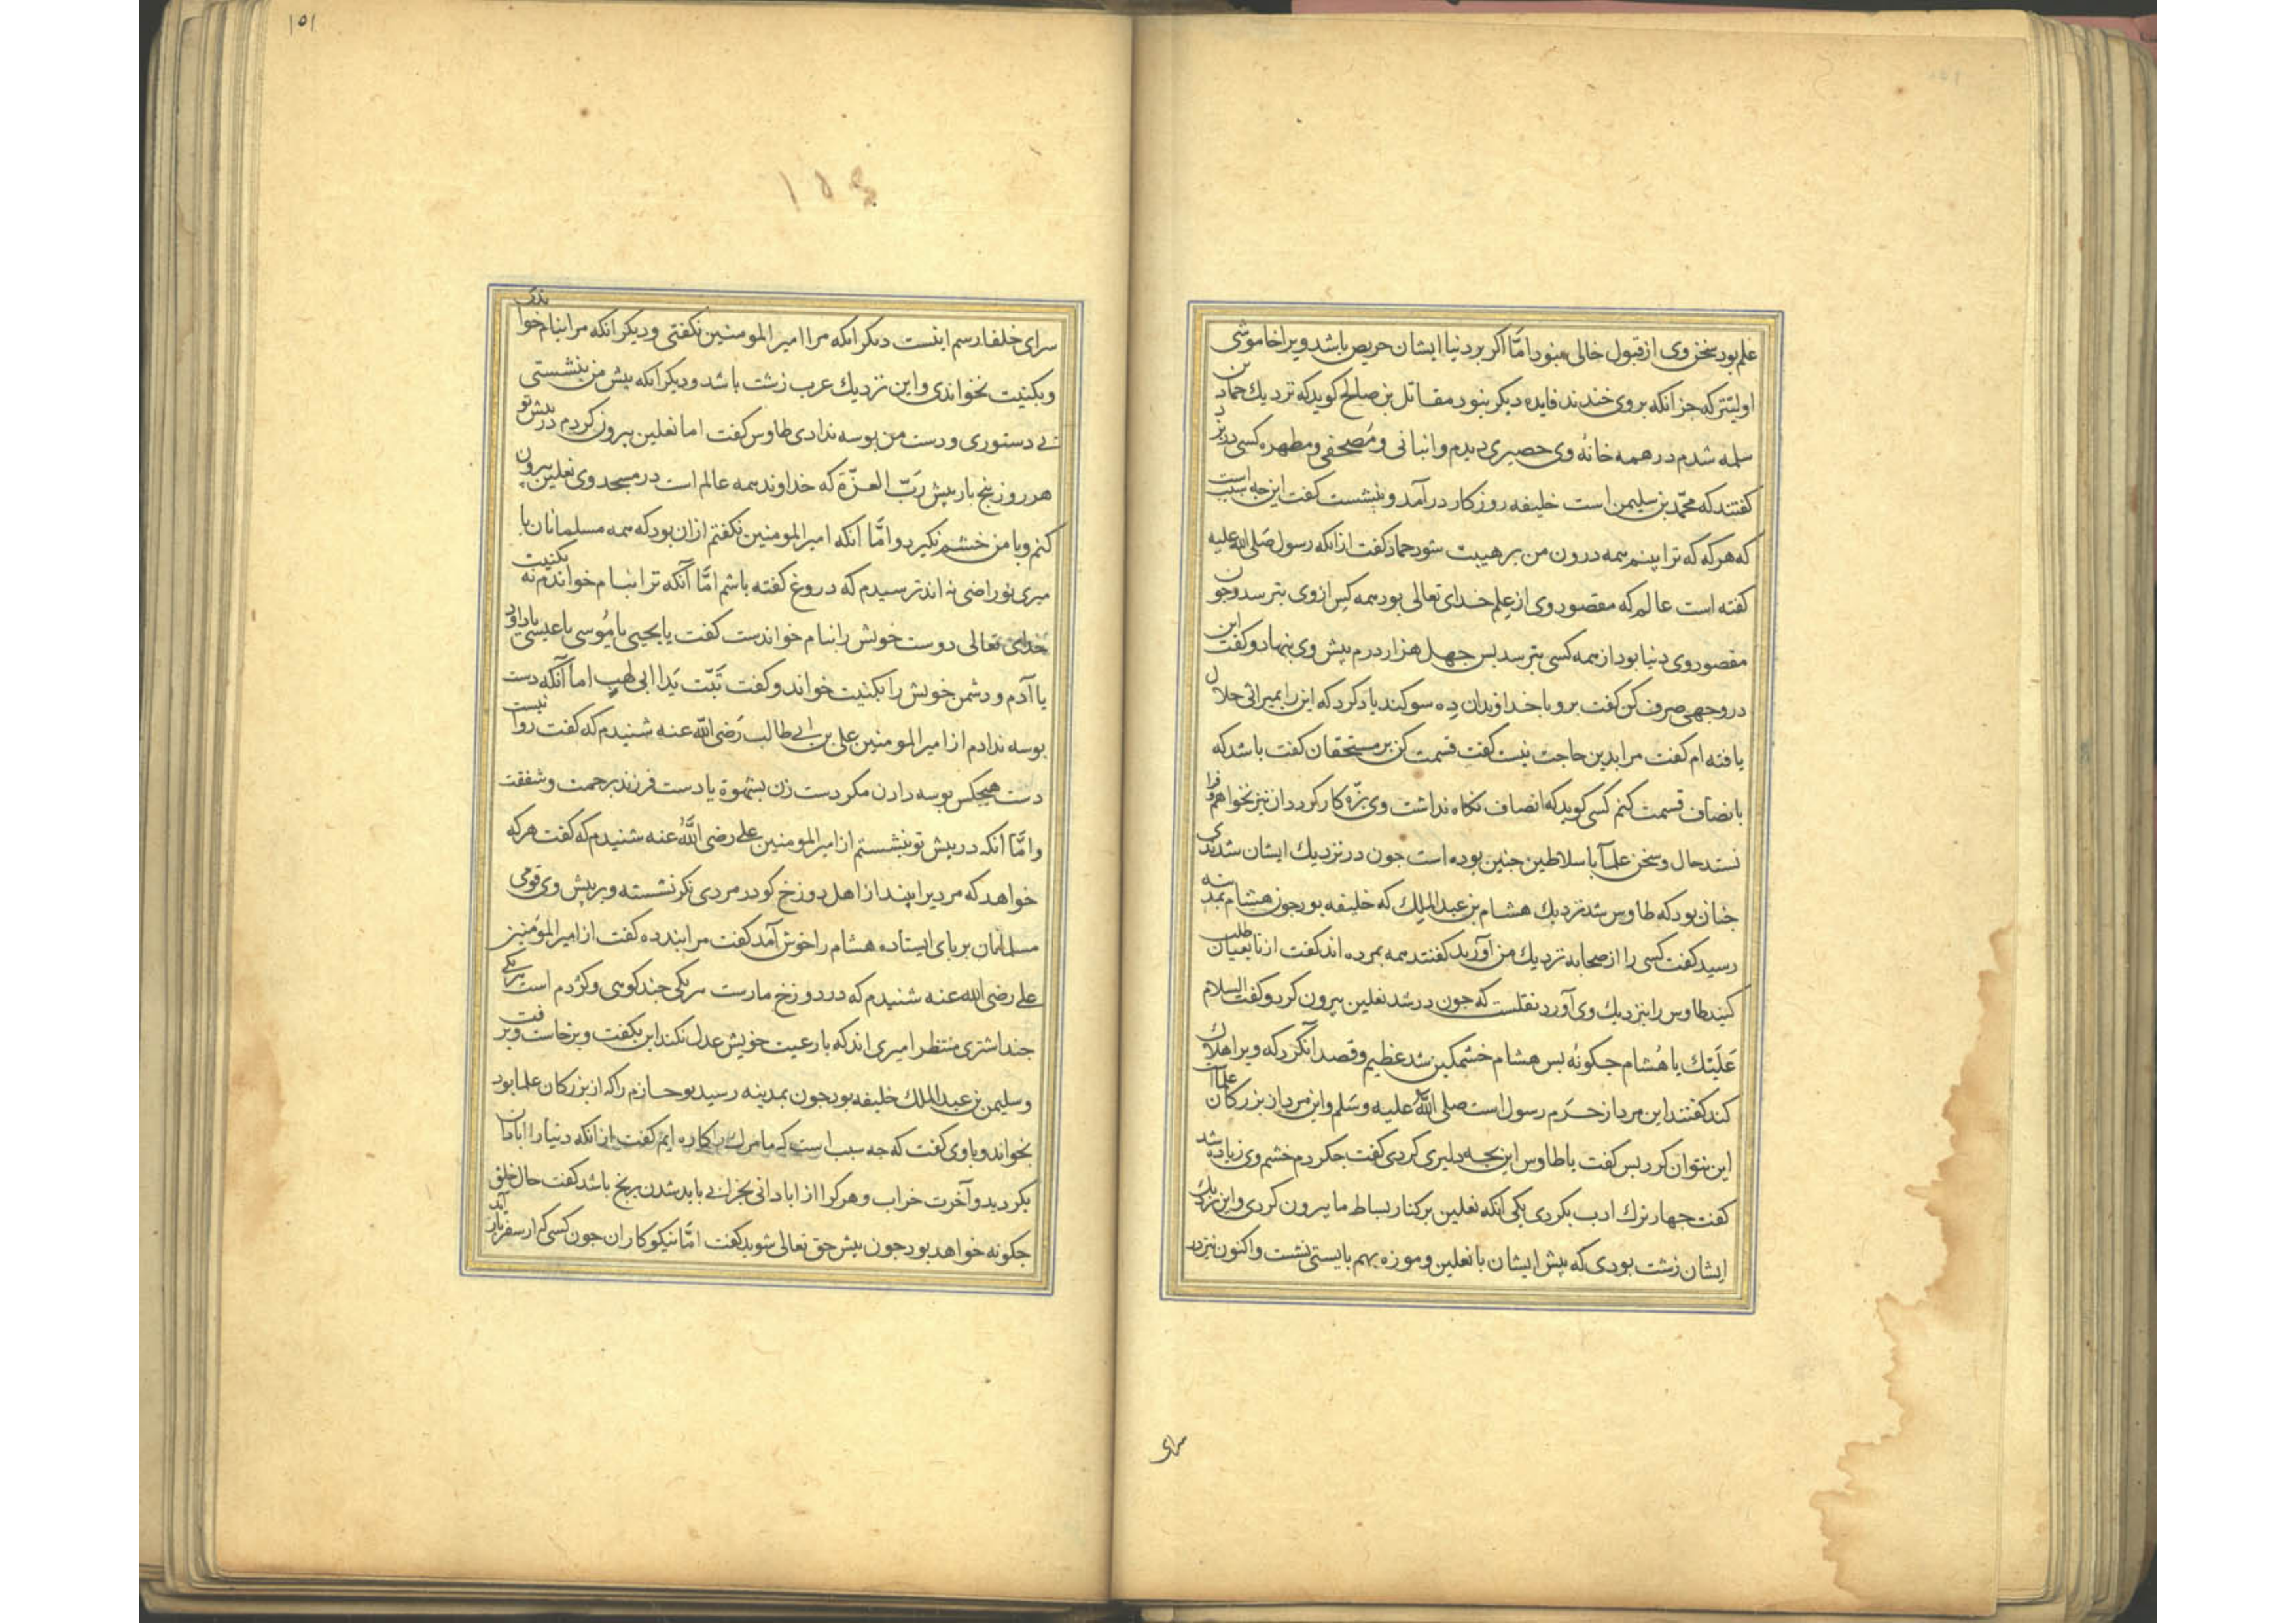 علم بود سخن وی از قبول خالی نبود امّا اکر بر دنیا ایشان حریص باشد ویرا خاموشی
اولیتر که جز آنکه بر وی خندند فایده دیکر نبود مقاتل بن صالح کوید که نزدیك حماد بن
سلمه شدم در همه خانهٔ وی حصیری دیدم و انبانی و مُصحفی و مطهره کسی در بزد
کفتند که محمّد بن سلیمن است خلیفه روزکار در آمد و بنشست کفت این جه سبب است
که هرکه که ترا بینم همه درون من بر هیبت شود حماد کفت از انکه رسول صلی الله علیه
کفته است عالم که مقصود وی از علم خدای تعالی بود همه کس از وی بترسد وجون
مقصود وی دنیا بود از همه کسی بترسد بس جهل هزار درم بیش وی بنهاد و کفت این
در وجهی صرف کن کفت برو با خداوندان ده سوکند یاد کرد که این را بمیراثی حلال
یافته ام کفت مرا بدین حاجت نیست کفت قسمت کن بر مستحقان کفت باشد که
بانصاف قسمت کنم کسی کوید که انصاف نکاه نداشت وی بزه کار کردد ان نیز نخواهم و فرا
نستد حال و سخن علمآ با سلاطین جنین بوده است جون در نزدیك ایشان شدندی
جنان بود که طاوس شد نزدیك هشام بن عبدالملك که خلیفه بود جون هشام بمدینه
رسید کفت کسی را از صحابه نزدیك من آورید کفتند همه بمرده اند کفت از تابعیان طلب
کنید طاوس را بنزدیك وی آورد نقلست که جون در شد نعلین بیرون کرد و کفت السلام
عَلَیْك یا هُشام جکونهٔ بس هشام خشمکین شد عظیم و قصد آن کرد که ویرا هلاك
کند کفتند این مرد از حَرَم رسول است صلی الله علیه وسلم و این مرد از بزرکان علماآ است
این نتوان کرد بس کفت یا طاوس این بجه دلیری کردی کفت جکردم خشم وی زیاده شد
کفت جهار ترك ادب بکردی یکی آنکه نعلین بر کنار بساط ما بیرون کردی و این نزدیك
ایشان زشت بودی که بیش ایشان با نعلین و موزه بهم بایستی نشست و اکنون نیز در
سرای
۱۵۱
۱۵۴
سرای خلفا رسم اینست دیکر انکه مرا امیر المومنین نکفتی و دیکر انکه مرا بنام خواندی
و بکنیت نخواندی و این نزدیك عرب زشت باشد و دیکر انکه بیش من بنشستی
بی دستوری و دست من بوسه ندادی طاوس کفت اما نعلین بیرون کردم در بیش تو
هر روز بنج بار بیش رَبّ العزّة که خداوند همه عالم است در مسجد وی نعلین بیرون
کنم و با من خشم نکیرد و امّا آنکه امیر المومنین نکفتم از ان بود که همه مسلمانان با
میری تو راضی نه اند ترسیدم که دروغ کفته باشم امّا آنکه ترا بنام خواندم نه بکنیت
خدای تعالی دوست خویش را بنام خواندست کفت یا یحیی یا مُوسی یا عیسی یا داود
یا آدم و دشمن خویش را بکنیت خواند و کفت تَبّت یَدا ابی لهبٍ اما آنکه دست
بوسه ندادم از امیر المومنین علی بن ابی طالب رَضی الله عنه شنیدم که کفت روا نیست
دست هیجکس بوسه دادن مکر دست زن بشهوة یا دست فرزند برحمت و شفقت
و امّا انکه در بیش تو بنشستم از امیر المومنین علی رضی اللهُ عنه شنیدم که کفت هر که
خواهد که مردیرا بیند از اهل دوزخ کو در مردی نکر نشسته و بر بیش وی قومی
مسلمانان بر بای ایستاده هشام را خوش آمد کفت مرا بند ده کفت از امیر المؤمنین
علی رضی الله عنه شنیدم که در دوزخ مارست هر یکی جند کوهی و کژدم است هر یکی
جند اشتری منتظر امیری اند که با رعیت خویش عدل نکند این بکفت و برخاست و برفت
و سلیمن بن عبدالملك خلیفه بود جون بمدینه رسید بو حازم را که از بزرکان علما بود
بخواند و با وی کفت که جه سبب است که ما مرك را کاره ایم کفت از انکه دنیا را ابادان
بکردید و آخرت خراب و هر کرا از ابادانی بخرابی باید شدن برنج باشد کفت حال خلق
جکونه خواهد بود جون بیش حق تعالی شوید کفت امّا نیکوکاران جون کسی که از سفر باز آید